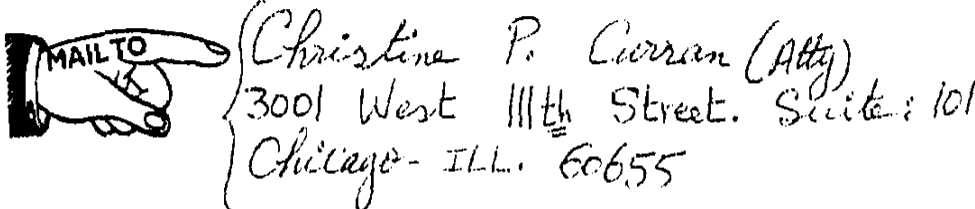 MAIL TO
Christine P. Curran (Atty)
3001 West 111th Street. Suite: 101
Chicago- ILL. 60655